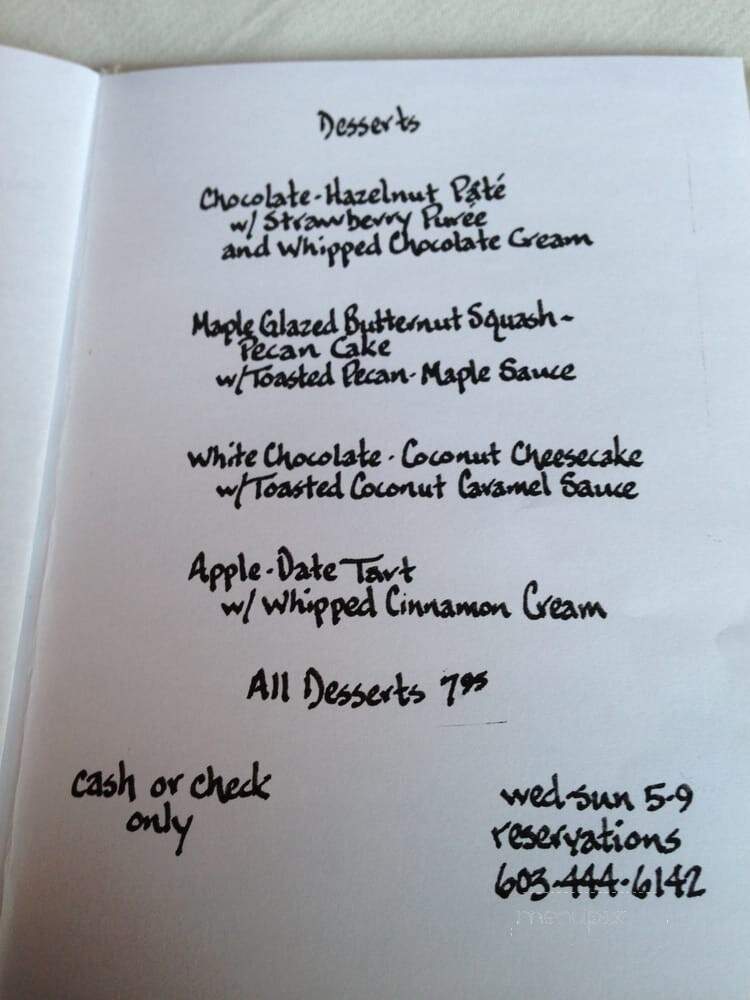 Desserts
Chocolate-Hazelnut Pâté
w/ Strawberry Purée
and Whipped Chocolate Cream
Maple Glazed Butternut Squash-
Pecan Cake
w/Toasted Pecan-Maple Sauce
White Chocolate-Coconut Cheesecake
w/Toasted Coconut Caramel Sauce
Apple-Date Tart
w/ Whipped Cinnamon Cream
All Desserts 7⁹⁵
cash or check
only
wed-sun 5-9
reservations
603-444-6142
menupix